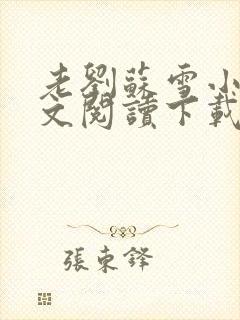 老劉蘇雪小
文閱讀下載
張東鋒